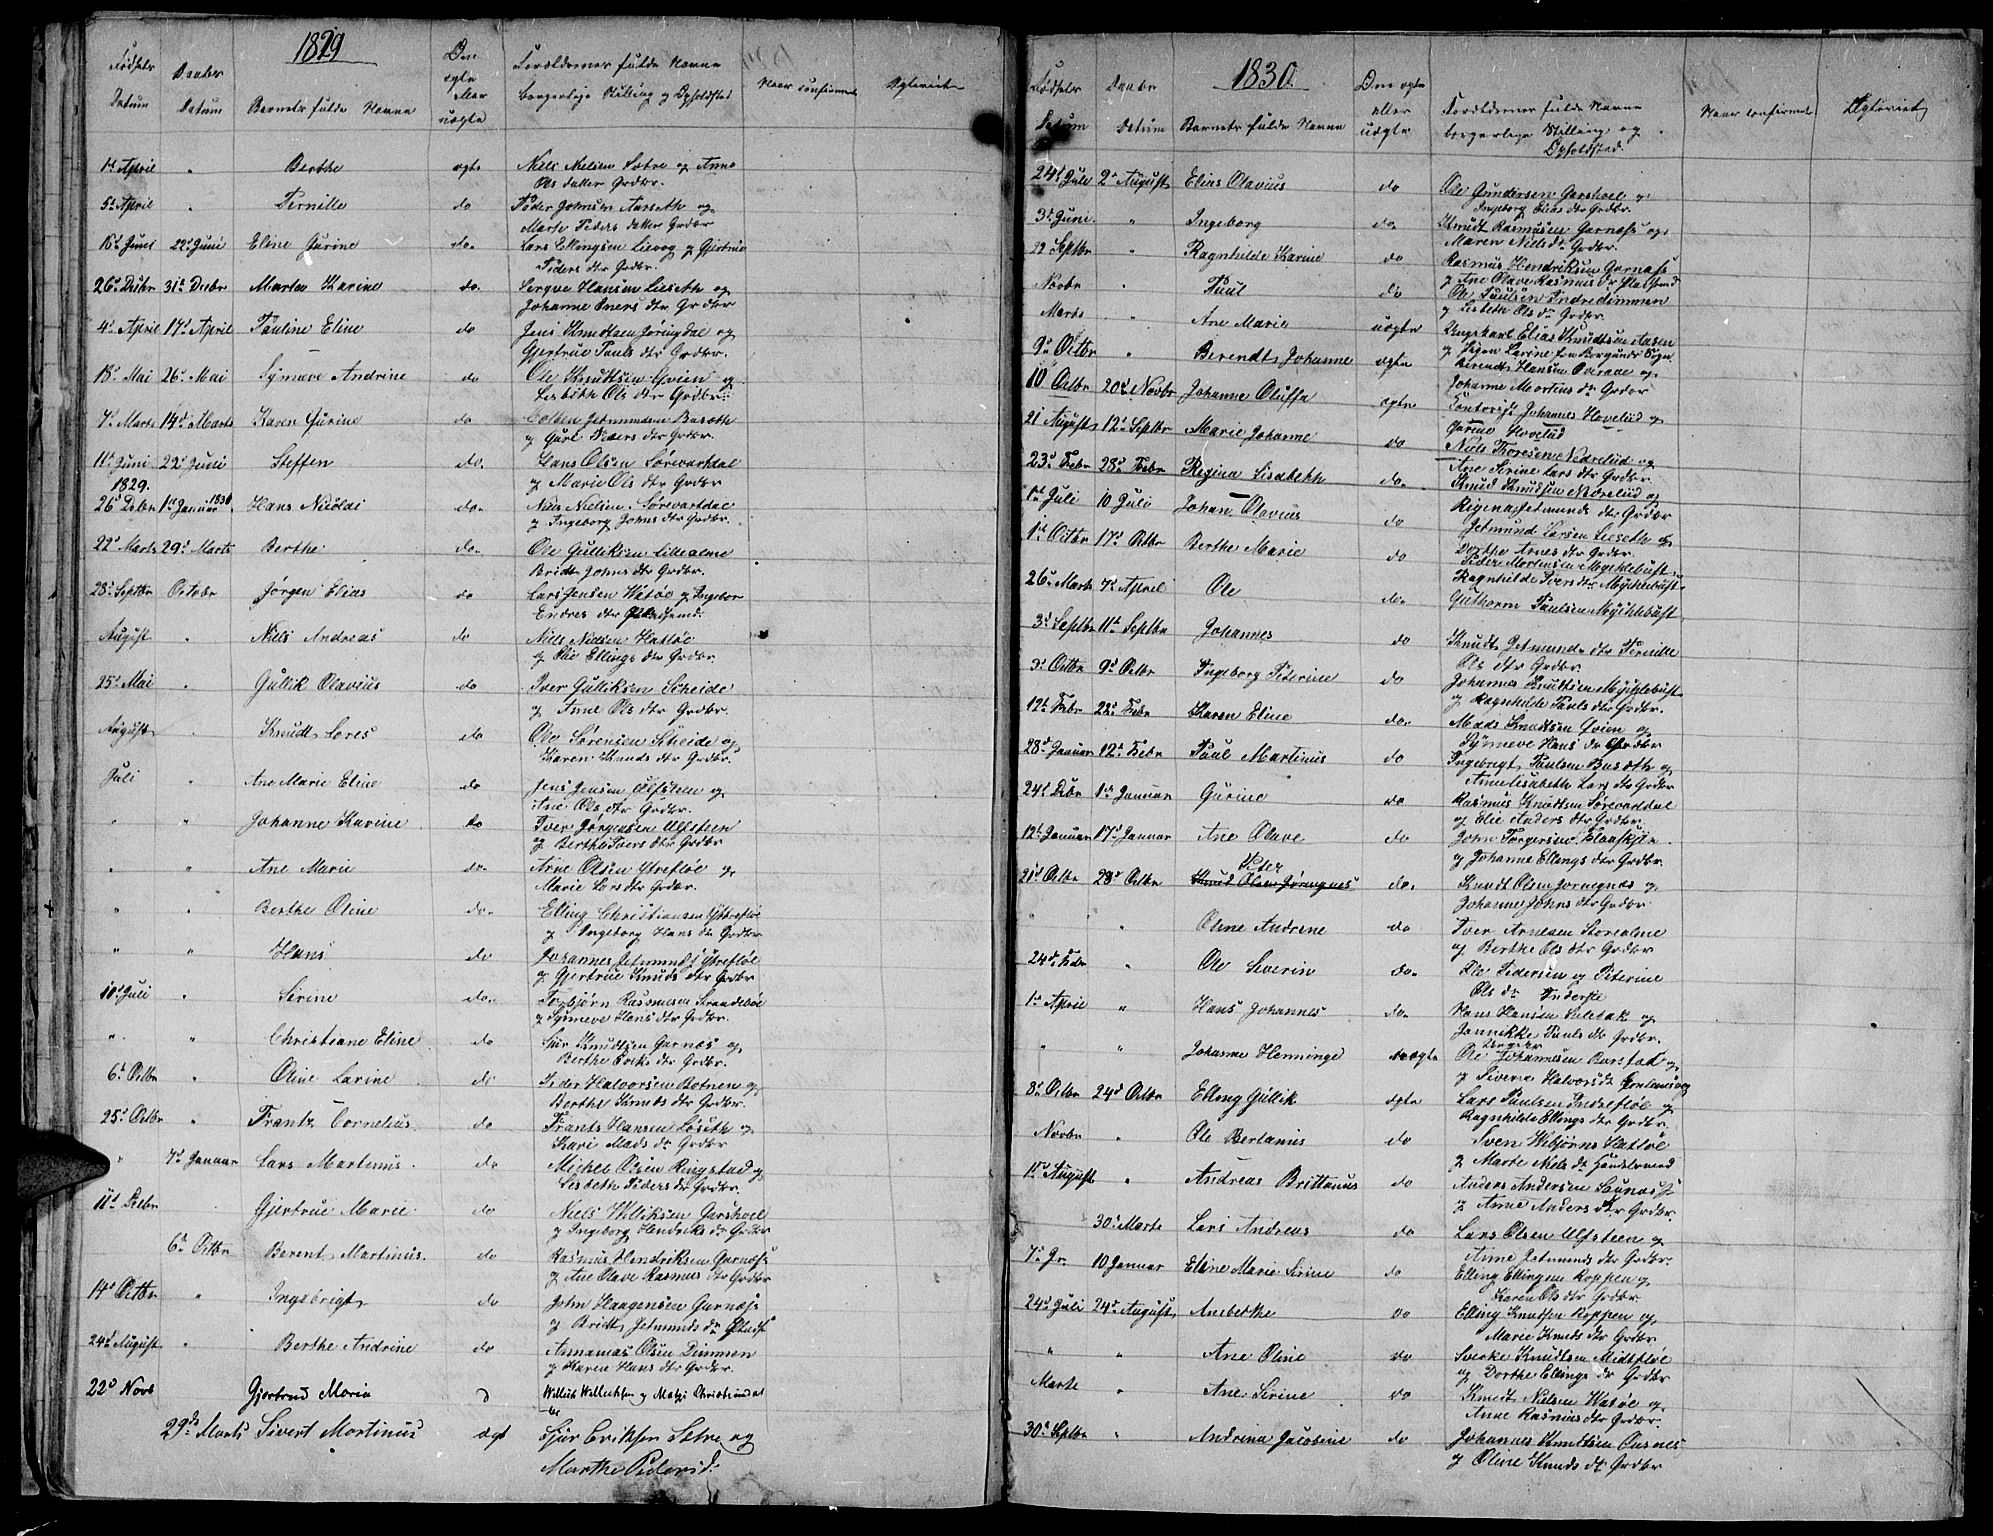 1829
Fødsels Datum
Daabs Datum
Barnets fulde Navne
Om ægte eller uægte
Forældrenes fulde Navne borgerlige Stilling og Opholdsted
Naar confirmeret
1st April " Berthe ægte Niels Nielsen Sætre og Anne
Ols datter Grdbr.
5t April " Pernille do Peder Johnsen Aarseth og
Marte Peders datter Grdbr
16d Juni 22d Juni Eline Gurine do. Lars Ellingsen Lievog og Gjertrue
Peders dtr Grdbr.
26d Decbr 31d Decbr Martha Karine do. Sergve Hansen Liaseth og
Johanne Ivers dtr Grdbr
4d April 17d April Pauline Eline do Jens Knudtsen Jøringdal og
Gjertrue Pauls dtr Grdbr.
18d Mai 26d Mai Synneve Andrine do Ole Knudtsen Øvien og
Lisbeth Ols dtr Grdbr.
7d Marts 14d Marts Karen Gurine do Colben Jetmundsen Buseth
og Guri Peders dtr Grdbr.
11d Juni 22d Juni Steffen do. Hans Olsen Sørevartdal
og Marie Ols dtr Grdbr
1829.
26d Decbr 1st Januar 1830. Hans Nicolai do. Niels Nielsen Sørevartdal
og Ingeborg Johns dtr Grdbr.
22d Marts 29d Marts Berthe do. Ole Gulliksen Lillealme
Bridt Johns dtr Grdbr.
28d Septbr October Jørgen Elias do Lars Jensen Watøe og Ingebor
Endres dtr
August " Niels Andreas do Niels Nielsen Hatløe
og Olie Ellings dtr Grdbr.
25d Mai " Gullik Olavius do Iver Gulliksen Scheide
og Anne Ols dtr Grdbr.
August " Knudt Lores do Ole Sørensen Scheide og
Karen Knuds dtr Grdbr.
Juli " Ane Marie Eline do Jens Jensen Ulfsteen og
Ane Ols dtr Grdbr.
" " Johanne Karine do Iver Jørgensen Ulfsteen
og Berthe Ivers dtr Grdbr
" " Ane Marie do. Arne Olsen Ytrefløe og
Marie Lars dtr Grdbr.
" " Berthe Oline do. Elling Christiansen Ytterfløe
og Ingeborg Hans dtr Grdbr
" " Hans do Johannes Jetmunds Ytrefløe
og Gjertrue Knuds dtr Grdbr
10d Juli " Sirine do. Torbjørn Rasmusen Strandebøe
og Synneve Hans dtr Grdbr.
" " Christiane Eline do Siur Knudtsen Garnæs og
Berthe Eriks dtr Grdbr.
6d Octbr " Oline Larine do Peder Halvorsen Botnen og
Berthe Knuds dtr Grdbr.
25d Octbr " Frantz Cornelius do Frants Hansen Løseth og
Kari Mads dr Grdbr
" 7d Januar Lars Martinus do Michel Olsen Ringstad og
Lisbeth Peders dtr Grdbr.
11d Decbr Gjertrue Marie do Niels Williksen Garshoel
og Ingeborg Hendriks dtr Grdbr
6d Octbr Berent Martinus. do Rasmus Hendriksen Garnæss
og Ane Olave Rasmus dtr Grdbr
14d Octbr " Ingebrigt do John Haagensen Garnæss
og Bridt Jetmunds dr
24d August " Berthe Andrine do Annanias Olsen Dimmen
og Karen Hans dtr Grdbr.
22d Novb Gjertrud Maria d Willik Willicksen og Matzi Christiansdat
29de Marts Sivert Martinus ægt Sjur Eriksen Sætre og
Marthe Pedersd.
1830.
Fødsels Datum
Daabs Datum
Barnets fulde Navne
Om ægte eller uægte
Forældrenes fulde Navne borgerlige Stilling og Opholdsted.
Naar confirmeret
24d Juli 2d August Elias Olavius do Ole Gundersen Garshoel og
Ingeborg Elias dtr Grdbr.
3d Juni. " Ingeborg do. Knudt Rasmusen Garnæss og
Maren Niels dr Grdbr.
22 Septbr " Ragnhilde Karine do Rasmus Hendriksen Garnæss
og Ane Olave Rasmus dr
Novbr " Paul do Ole Paulsen Indredimmen
og Lisbeth Ols dr Grdbr.
Marts " Ane Marie uægte Ungekarl Elias Knudtsen Aasen
og Pigen Larine fra Borgunds Sogn
9d Octbr " Berendt Johanne ægte Berendt Hansen Overaae og
Johanne Martins dr Grdbr
10 Octbr 20d Novbr Johanne Oluffa ægte Contorist Johannes Hovelüd og
Gurine Hovelüd
21 August 12d Septbr Marie Johanne do Niels Thoresen Nedrelüd og
Ane Sirine Lars dtr Grdbr.
23d Febr 28d Febr Regina Lisabeth do. Knud Knudsen Nedrelüd og
Regina Jetmunds dtr Grdbr
1st Juli 10 Juli Johan Olavius do Jetmund Larsen Lieseth og
Dorthe Arnes dtr Grdbr.
1st Octbr 17d Octbr Berthe Marie do Peder Mortensen Mycklebust
Ragnhilde Ivers dtr Mycklebust
26d Marts 7d April Ole do. Guthorm Paulsen Mycklebust
3d Septbr 11d Septbr Johannes do Knudt Jetmunds dtr Pernille
Ols dtr Grdbr.
3d Octbr 9d Octbr Ingeborg Peterine do Johannes Knudtsen Mycklebust
og Ragnhilde Pauls dtr Grdbr.
12t Febr 22d Febr Karen Eline do. Mads Knudtsen Øvien og
Synneve Hans dr Grdbr
28d Januar 12t Febr Paul Martinus do Ingebrigt Paulsen Buseth og
Anne Lisabeth Lars dtr Grdbr
24d Decbr 1st Januar Gurine do Rasmus Knudtsen Sørevartdal
og Elie Anders dtr Grdbr.
12t Januar 17d Januar Ane Olave do John Torgersen Flaaskjer
og Johanne Ellings dtr Grdbr.
Peter
21d Octbr 28d Octbr Knud Olsen Jøringnes do. Knudt Olsen Jøringnæs og
Johanne Johns dtr Grdbr.
" " Oline Andrine do Iver Arnesen Storealme
og Berthe Ols dtr Grdbr
24d Febr " Ole Severin do. Ole Pedersen og Peterine
Ols dr
1st April " Hans Johannes do. Hans Hansen Sulebak og
Jannikke Pauls dr Grdbr.
" " Johanne Henninge uægte Ole Johannesen Barstad og
og Siverine Halvorsdt
8d Octbr 24d Octbr Elling Gullik ægte Lars Paulsen Indrefløe og
Ragnhilde Ellings dtr Grdbr.
Novbr " Ole Bertanius do Sven Wibjørns Hatløe
og Marte Niels dt Huusmand
11t August " Andreas Brittanus do Anders Andersen Saunæss
og Anne Anders dtr Grdbr.
30d Marts Lars Andreas do Lars Olsen Ulfsteen og
Anne Jetmunds dtr Grdbr.
7d Jr. 10 Januar Eline Marie Sirine do Elling Ellingsen Roppen og
Karen Ols dtr Grdbr.
24d Juli 24d August Anberthe do Elling Knudsen Roppen og
Marie Knuds dtr Grdbr
" " Ane Oline do Sverke Knudtsen Midtfløe
og Dorthe Ellings dtr Grdbr
Marts " Ane Sirine do Knudt Nielsen Watøe og
Anne Rasmus dtr Grdbr.
30d Septbr " Andrena Jacobine do Johannes Knudtsen Ousnes
og Oline Knuds dtr Grdbr